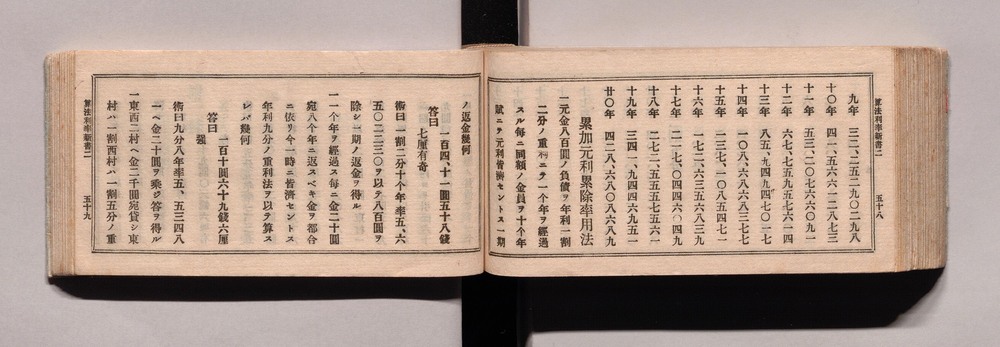 算法利率新書二　五十八
九年　三二、二五二九〇二九八
十〇年　四一、五六六一二八七三
十一年　五三、二〇七六六〇九一
十二年　六七、七五九五七六一四
十三年　八五、九四九四七〇一七
十四年　一〇八、六八六八三七七
十五年　一三七、一〇八五四七一
十六年　一七二、六三五六八三九
十七年　二一七、〇四四六〇四九
十八年　二七二、五五五七五六一
十九年　三四一、九四四六九五一
廿〇年　四二八、六八〇八六八九
累加元利累除率用法
一元金八百圓ノ負債ヲ年利一割
二分ノ重利ニテ一个年ヲ經過
スル每ニ同額ノ金員ヲ十个年
賦ニテ元利皆濟セントス一期
ノ返金幾何
答曰　一百四、十一圓五十八錢
七厘有奇
術曰一割二分十个年率五、六
五〇二二三〇ヲ以テ八百圓ヲ
除シ一期ノ返金ヲ得ル
一一个年ヲ經過ス每ニ金二十圓
宛八个年ニ返スベキ金ヲ都合
ニ依リ今一時ニ皆濟セントス
年利九分ノ重利法ヲ以テ算ス
レバ幾何
答曰　一百十圓六十九錢六厘
强
術曰九分八年率五、五三四八
一ヘ金二十圓ヲ乘ジ答ヲ得ル
一東西二村ヘ金二千圓宛貸シ東
村ハ一割西村ハ一割五分ノ重
算法利率新書二　五十九